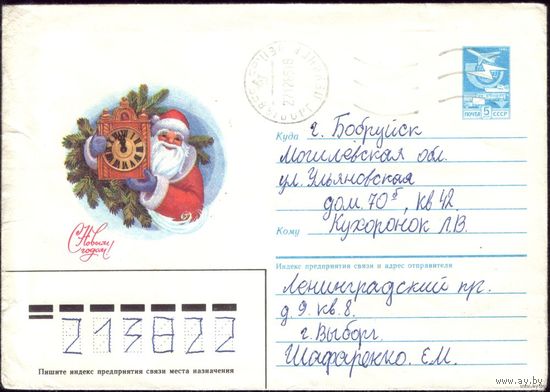 ПОЧТА 5 СССР
Куда г. Бобруйск
Могилевская обл.
ул. Ульяновская
дом. 70б, кв 42
Кому Кухоронок Л.В.
С Новым
годом!
Индекс предприятия связи и адрес отправителя
Ленинградский пр.
д. 9. кв. 8.
г. Выборг.
Шафаренко. Е.М.
213822
Пишите индекс предприятия связи места назначения
www.ay.by